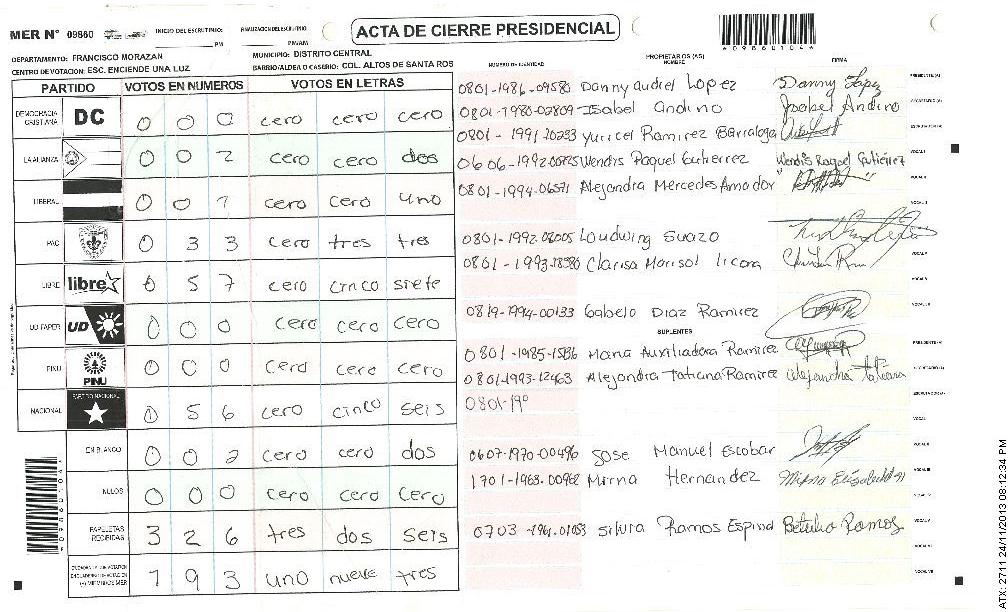 ACTA DE CIERRE PRESIDENCIAL
MER N° 09860
INICIO DEL ESCRUTINIO: PM
FINALIZACION DEL ESCRUTINIO: PM/AM
DEPARTAMENTO: FRANCISCO MORAZAN
MUNICIPIO: DISTRITO CENTRAL
CENTRO DE VOTACION: ESC. ENCIENDE UNA LUZ
BARRIO/ALDEA O CASERIO: COL. ALTOS DE SANTA ROS
PARTIDO VOTOS EN NUMEROS VOTOS EN LETRAS
DEMOCRACIA CRISTIANA DC 0 0 0 cero cero cero
LA ALIANZA 0 0 2 cero cero dos
LIBERAL 0 0 1 cero cero uno
PAC 0 3 3 cero tres tres
LIBRE libre 0 5 7 cero cinco siete
UD FAPER UD 0 0 0 cero cero cero
PINU PINU 0 0 0 cero cero cero
NACIONAL PARTIDO NACIONAL 0 5 6 cero cinco seis
EN BLANCO 0 0 2 cero cero dos
NULOS 0 0 0 cero cero cero
PAPELETAS RECIBIDAS 3 2 6 tres dos seis
1 9 3 uno nueve tres
NUMERO DE IDENTIDAD PROPIETARIOS (AS) NOMBRE FIRMA
0801-1986-09580 Danny audiel Lopez Danny Lopez
0801-1980-02809 Isabel Andino Isabel Andino
0801-1991-20293 Yuricel Ramirez
0606-1992-00725 Wendis Raquel Gutierrez Wendis Raquel Gutiérrez
0801-1994-06571 Alejandra Mercedes Amador
0801-1992-08005 Loudwing Suazo
0801-1993-18580 Clarisa Marisol licona
0819-1994-00133 Gabelo Diaz Ramirez
SUPLENTES
0801-1985-15836 Maria Auxiliadora Ramirez
0801-1993-12463 Alejandra Tatiana Ramirez Alejandra Tatiana
0801-19
0607-1970-00496 Jose Manuel Escobar
1701-1963-00962 Mirna Hernandez
0703-1961-01053 Ramos Espinal Ramos
ATX: 2711 24/11/2013 08:12:34 PM